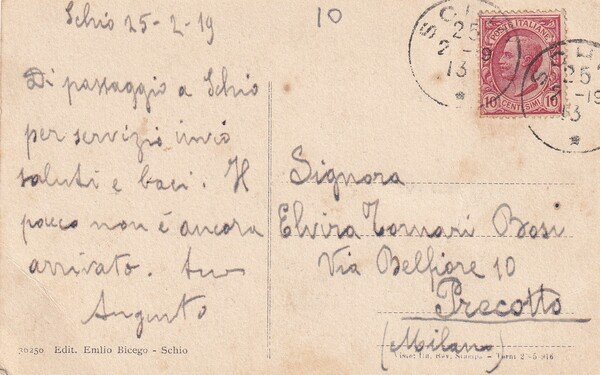 Schio 25-2-19
10
Di passaggio a Schio
per servizio invio
saluti e baci. Il
pacco non è ancora
arrivato. tuo
Augusto
POSTE ITALIANE
10 CENTESIMI 10
SCHIO
25
2-19
13
SCHIO
25
2-19
13
Signora
Elvira Bosi
Via Belfiore 10
Precotto
(Milano)
30250 Edit. Emilio Bicego - Schio
Rev. Stampa - Terni 2-5-916